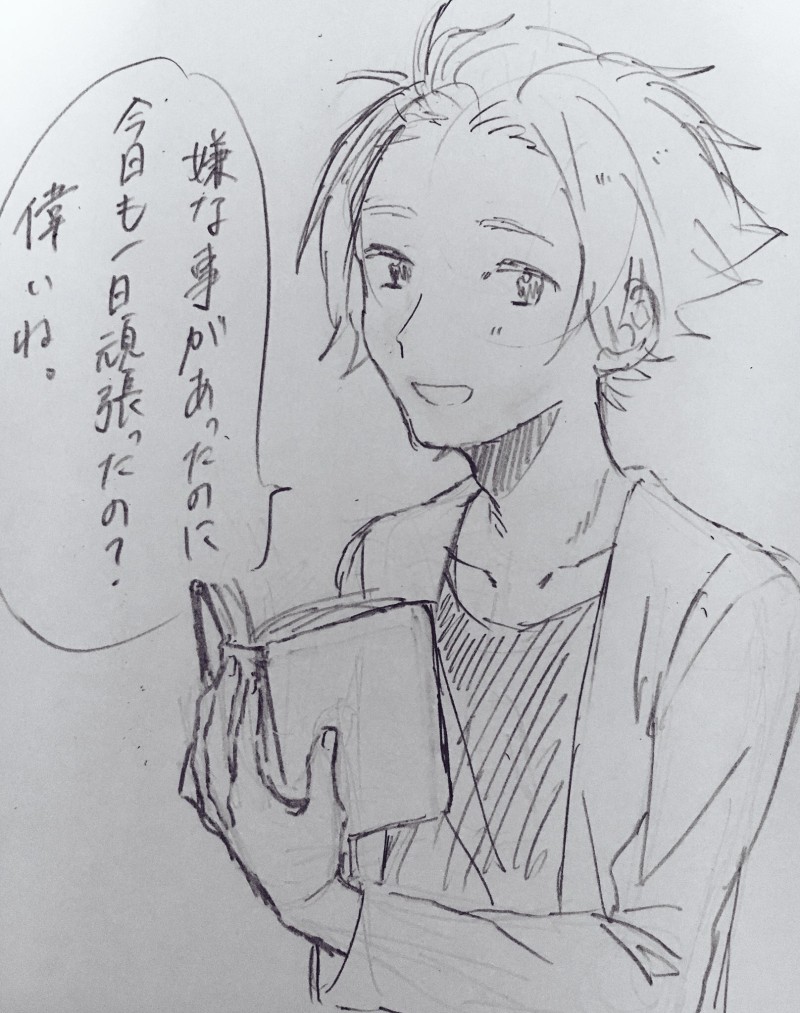 嫌な事があったのに
今日も一日頑張ったの?
偉いね。